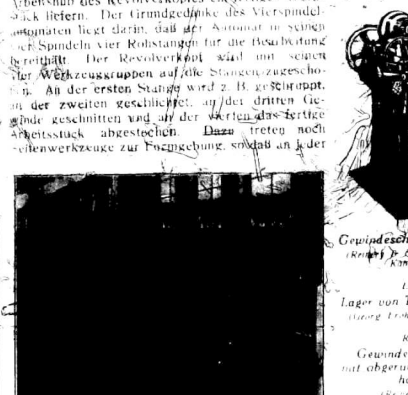 Arbeitshub des Revolverkopfes
liefern. Der Grundgedanke des Vierspindel-
automaten liegt darin, daß der Automat in seinen
Spindeln vier Rohstangen für die Bearbeitung
bereithält. Der Revolverkopf wird mit seinen
vier Werkzeuggruppen auf die Stangen zugescho-
An der ersten Stange wird z. B. geschruppt,
an der zweiten geschlichtet, an der dritten Ge-
winde geschnitten und an der vierten das fertige
Arbeitsstück abgestochen. Dazu treten noch
Seitenwerkzeuge zur Formgebung, so daß an jeder
Gewindesch
Lager von
Gewinde
mit abgeru